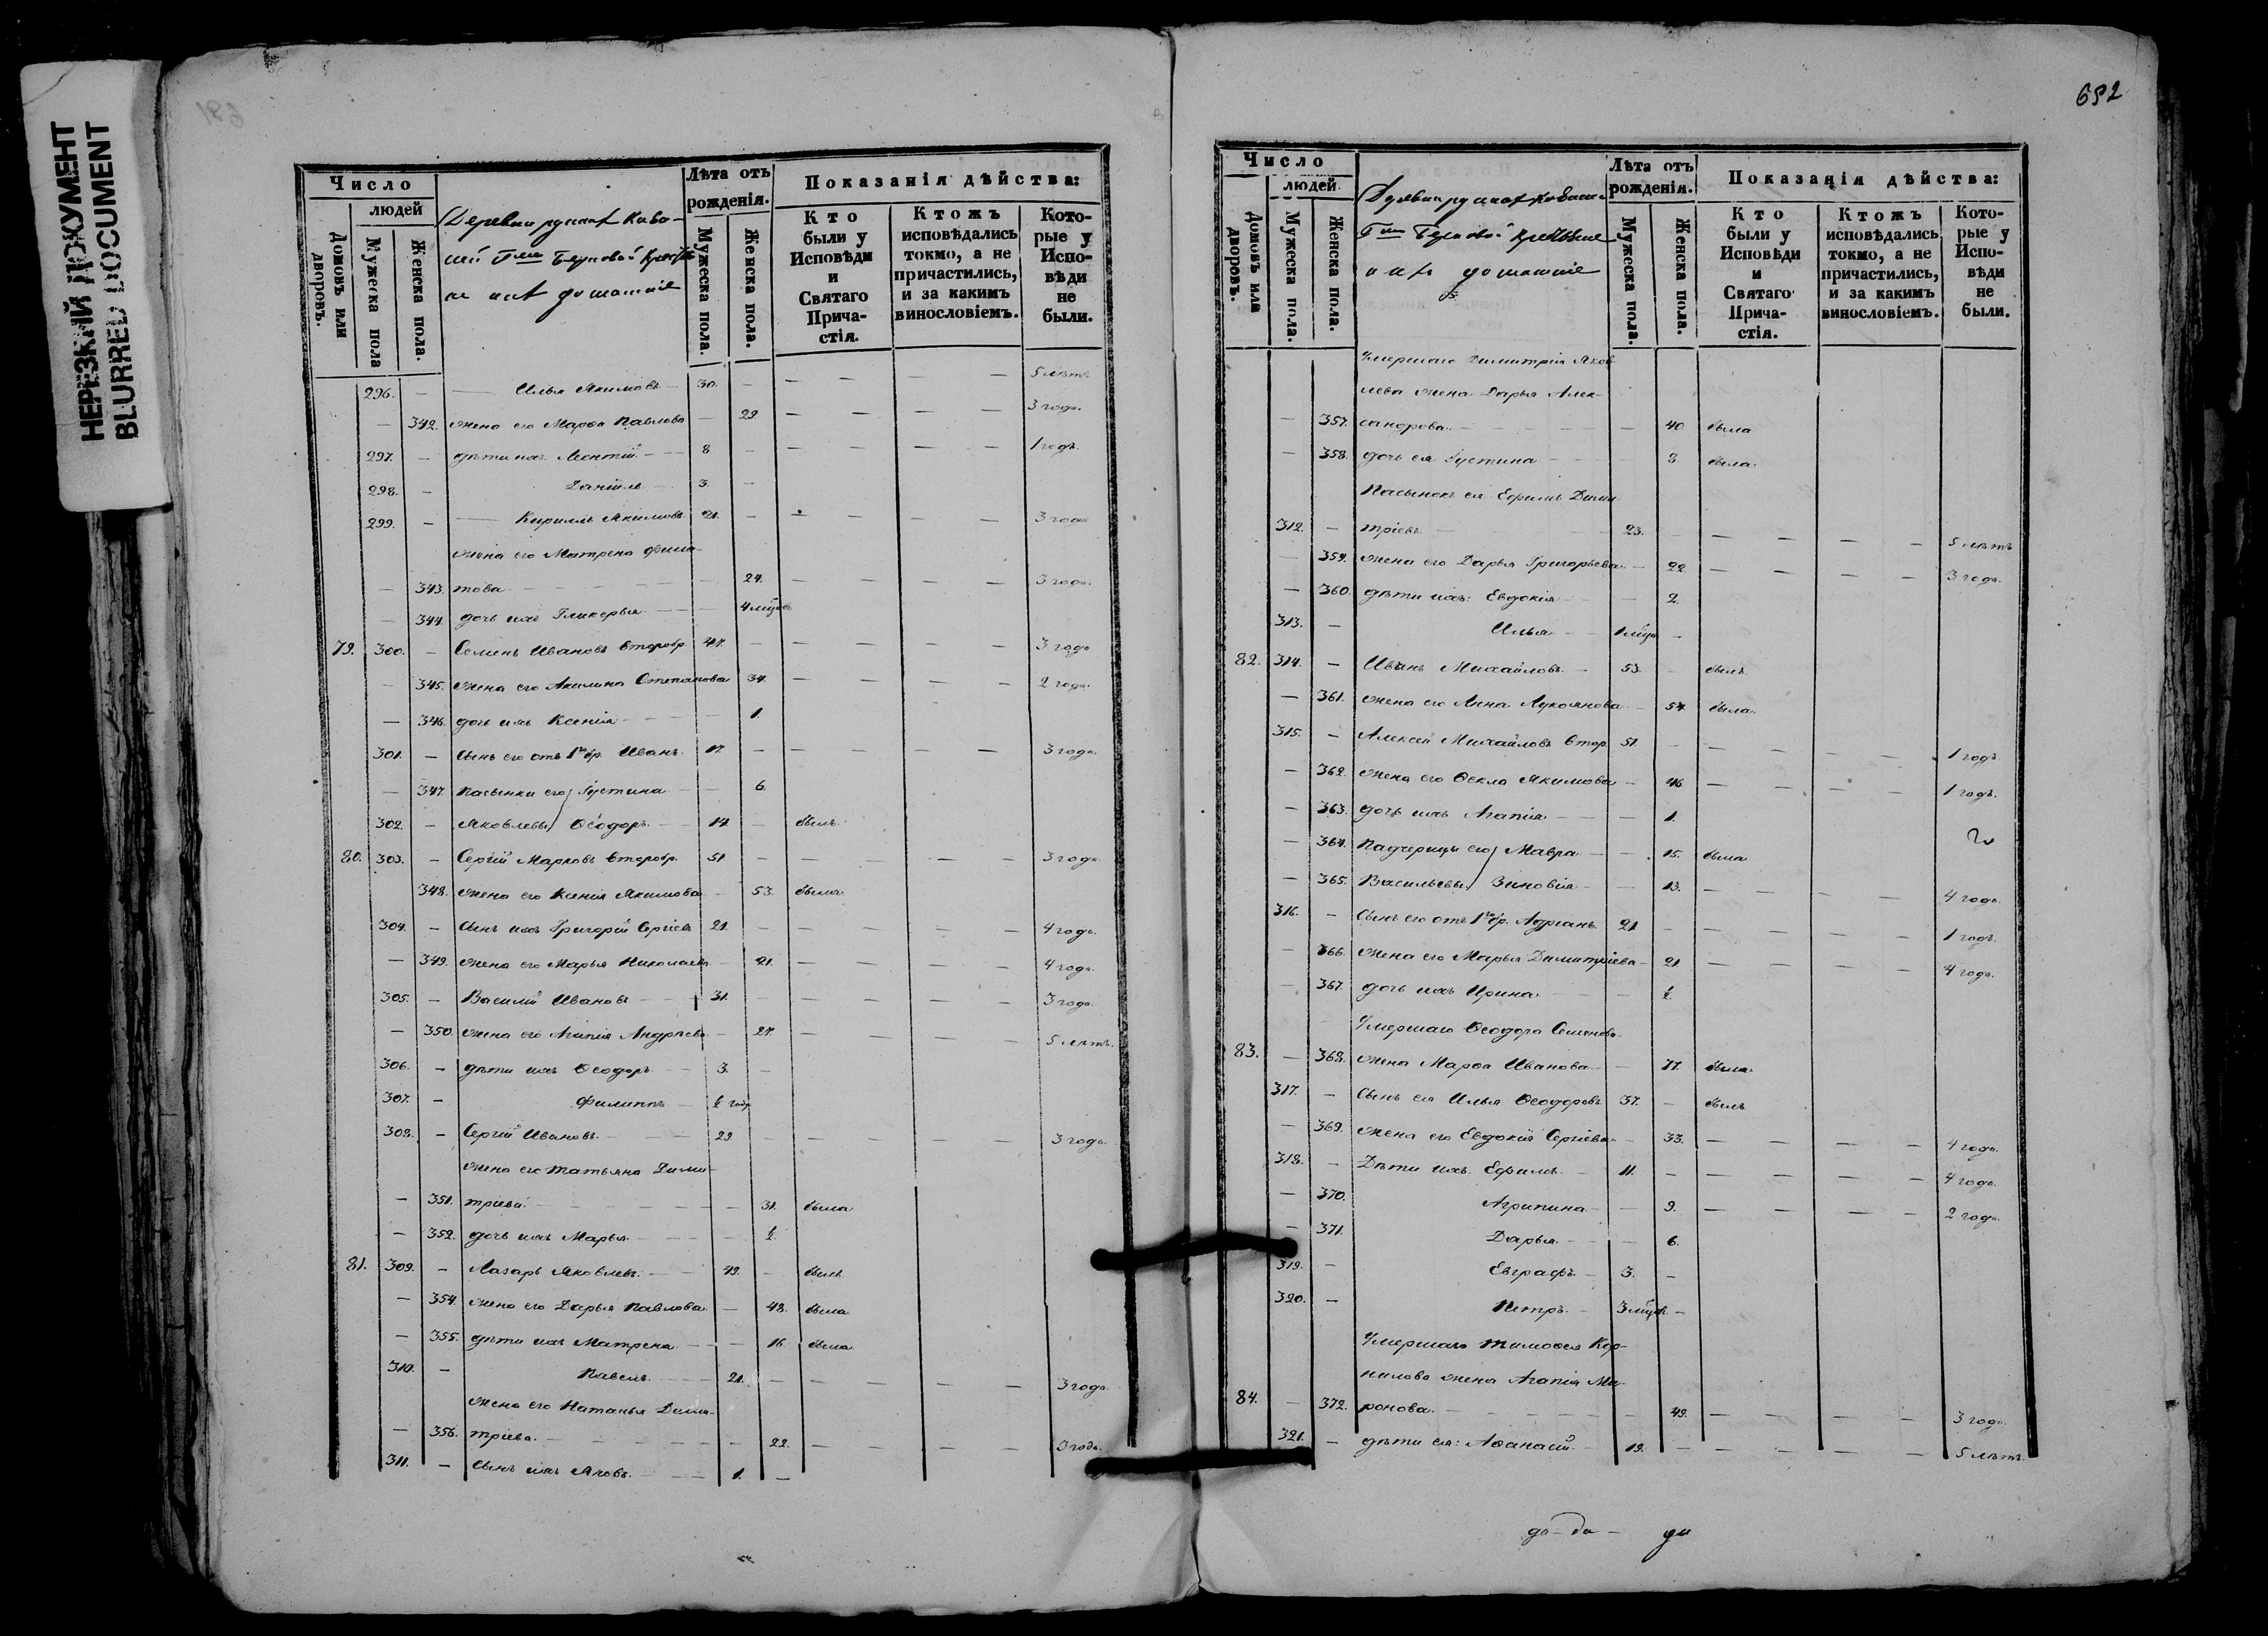 НЕРЕЗКИЙ ДОКУМЕНТ
BLURRED DOCUMENT
691
Число
людей
Домовъ или дворовъ.
Мужеска пола
Женска пола.
Деревни
домашніе
Лѣта отъ рожденія.
Мужеска пола.
Женска пола.
Показанія дѣйства:
Кто были у Исповѣди и Святаго Прича-стія.
Ктожъ исповѣдались токмо, а не причастились, и за какимъ винословіемъ.
Кото-рые у Испо-вѣди не были.
296. — — Илья Якимовъ 30. — — — — — 5 лѣтъ
— 342. жена его Марѳа Павлова — 29 — — — — 3 года.
297. — дѣти ихъ Леонтій — 8 — — — — — 1 годъ.
298. — Даніилъ 3. —
299. — — Кириллъ Якимовъ 21. — — — — — 3 года
жена его Матрена Фили-
— 343. това — — 24. — — — — 3 года.
— 344. дочь ихъ Гликерья — — 4 мѣсяц.
79. 300. — Семенъ Ивановъ второбр. 47. — — — — — 3 года
— 345. жена его Акилина Степанова 34. — — — — 2 года.
— 346. дочь ихъ Ксенія — — 1.
301. — сынъ его отъ 1го бр. Иванъ. 17. — — — — — 3 года.
— 347. пасынки его Іустина — — 6.
302. — Яковлевы Ѳеодоръ — 14. — былъ.
80. 303. — Сергій Марковъ второбр. 51. — — — — — 3 года
348. жена его Ксенія Якимова — 53. была.
304. — сынъ ихъ Григорій Сергіевъ 21. — — — — — 4 года.
— 349. жена его Марья Николаева — 21. — — — — 4 года.
305. — Василій Ивановъ — 31. — — — — — 3 года.
— 350. жена его Агапія Андреева — 27. — — — — 5 лѣтъ.
306. — дѣти ихъ Ѳеодоръ — 3. —
307. — Филиппъ — ½ года
308. — Сергій Ивановъ. — 29. — — — — — 3 года.
жена его Татьяна Дими-
— 351. тріева. — — 31. была
— 352. дочь ихъ Марья — — ½.
81. 309. — Лазарь Яковлевъ. — 49. — былъ
— 354. жена его Дарья Павлова. — 48. была
— 355. дѣти ихъ Матрена — — 16. была
310. — Павелъ. — 21. — — — — — 3 года.
жена его Наталья Дими-
— 356. тріева. — — 22. — — — — 3 года.
311. — сынъ ихъ Яковъ. — 1. —
692
Число
людей
Домовъ или дворовъ.
Мужеска пола.
Женска пола.
домашніе
Лѣта отъ рожденія.
Мужеска пола.
Женска пола.
Показанія дѣйства:
Кто были у Исповѣди и Святаго Прича-стія.
Ктожъ исповѣдались токмо, а не причастились, и за какимъ винословіемъ.
Кото-рые у Испо-вѣди не были.
Умершаго Димитрія Яков-
лева жена Дарья Алек-
— 357. сандрова. — — 40. была
— 358. дочь ея Іустина — — 8. была.
Пасынокъ ея Ефимъ Дими-
312. — тріевъ — 23. — — — — — 5 лѣтъ
— 359. жена его Дарья Григорьева. — 22. — — — — 3 года.
— 360. дѣти ихъ: Евдокія — — 2.
313. — Илья — 1 мѣсяц. —
82. 314. — Иванъ Михайловъ. — 53. — былъ.
— 361. жена его Анна Лукоянова — 54. была.
315. — Алексей Михайловъ втор. 51. — — — — — 1 годъ
— 362. жена его Ѳекла Якимова — 46. — — — — 1 годъ.
— 363. дочь ихъ Агапія. — — 1.
— 364. Падчерицы его Мавра — — 15. была
— 365. Васильевы Зиновія — — 13. — — — — 4 года.
316. — сынъ его отъ 1го бр. Адріанъ. 21. — — — — — 1 годъ.
— 366. жена его Марья Димитріева — 21. — — — — 4 года.
— 367. дочь ихъ Ирина. — — ½.
Умершаго Ѳеодора Семенова
83. — 368. жена Марѳа Иванова. — — 77. была.
317. — сынъ ея Илья Ѳеодоровъ. 37. — былъ
— 369. жена его Евдокія Сергіева. — 33. — — — — 4 года.
318. — Дѣти ихъ. Ефимъ. — 11. — — — — — 4 года.
— 370. Агрипина — — 9. — — — — 2 года.
— 371. Дарья. — — 6.
319. — Евграфъ. — 3. —
320. — Петръ. — 3 мѣсяц. —
Умершаго Тимоѳея Кор-
нилова жена Агапія Ми-
84. — 372. ронова. — — 49. — — — — 3 года.
321. — дѣти ея: Аѳанасій. — 19. — — — — — 5 лѣтъ.